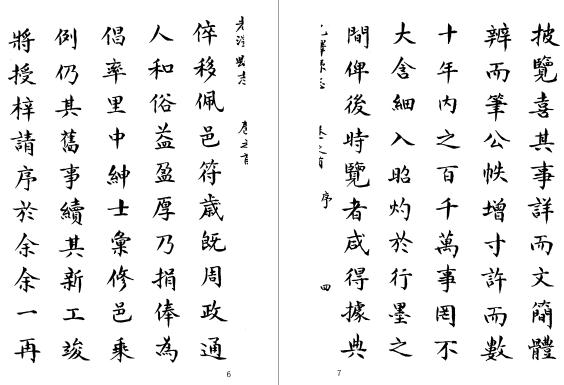 卷之首
倅移佩邑符歲既周政通
人和俗益盈厚乃捐俸為
倡率里中紳士彙修邑乘
例仍其舊事續其新工竣
將授梓請序於余余一再
6
披覽喜其事詳而文簡體
辨而筆公帙增寸許而數
十年內之百千萬事罔不
大含細入昭灼於行墨之
間俾後時覽者咸得據典
序 四
7